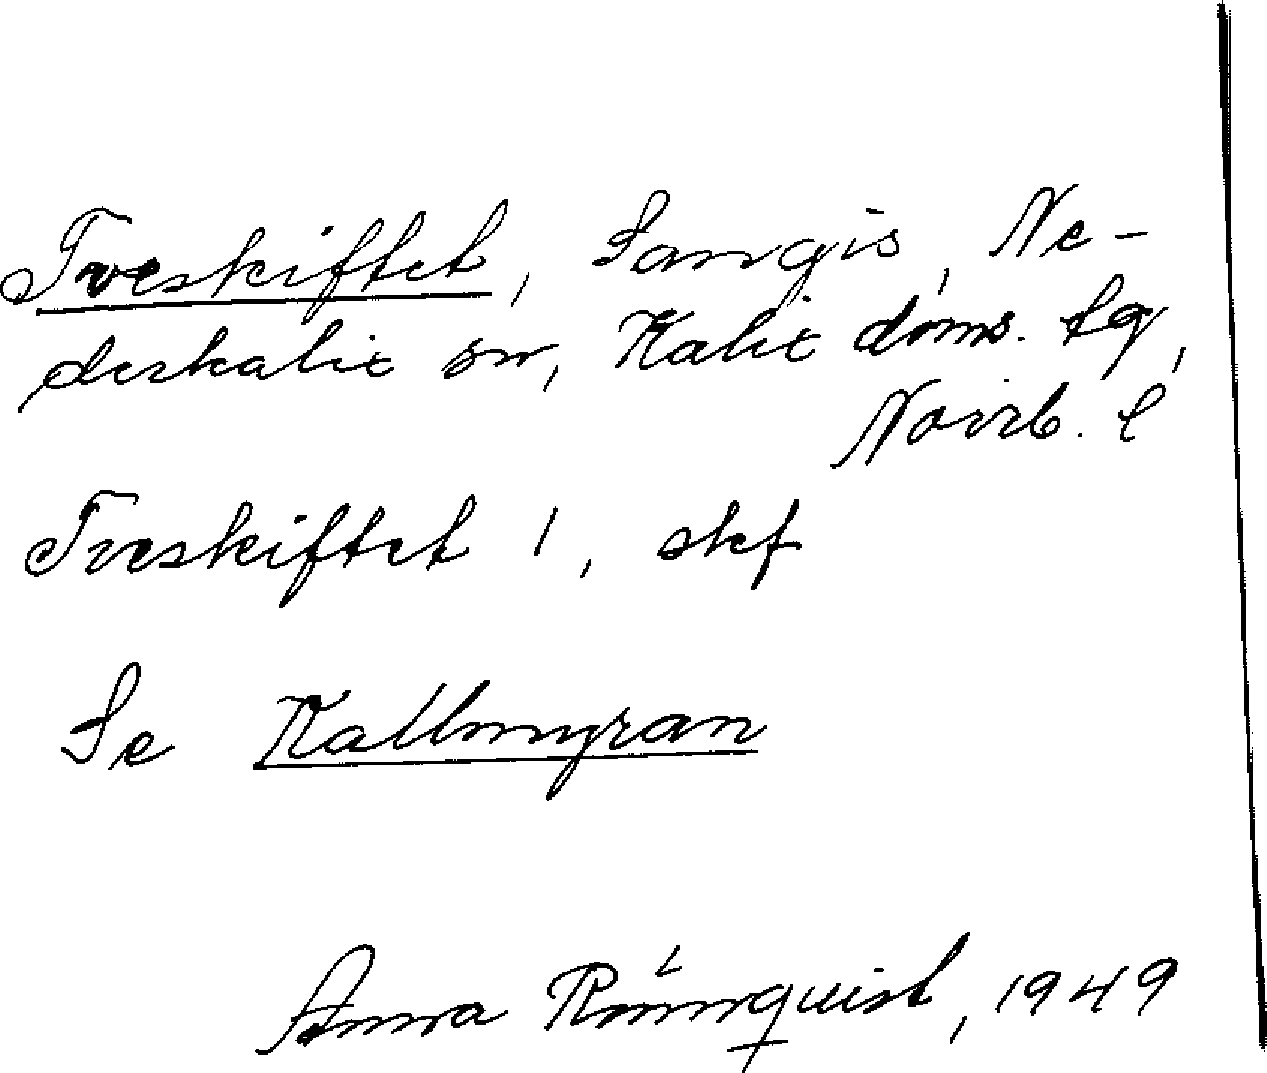 Tveskiftet, Sangis, Ne-
derkalix sn, Kalix doms. tg,
Norrb. l
Tveskiftet 1, skf
Se Kallmyran
Anna Rönnquist, 1949